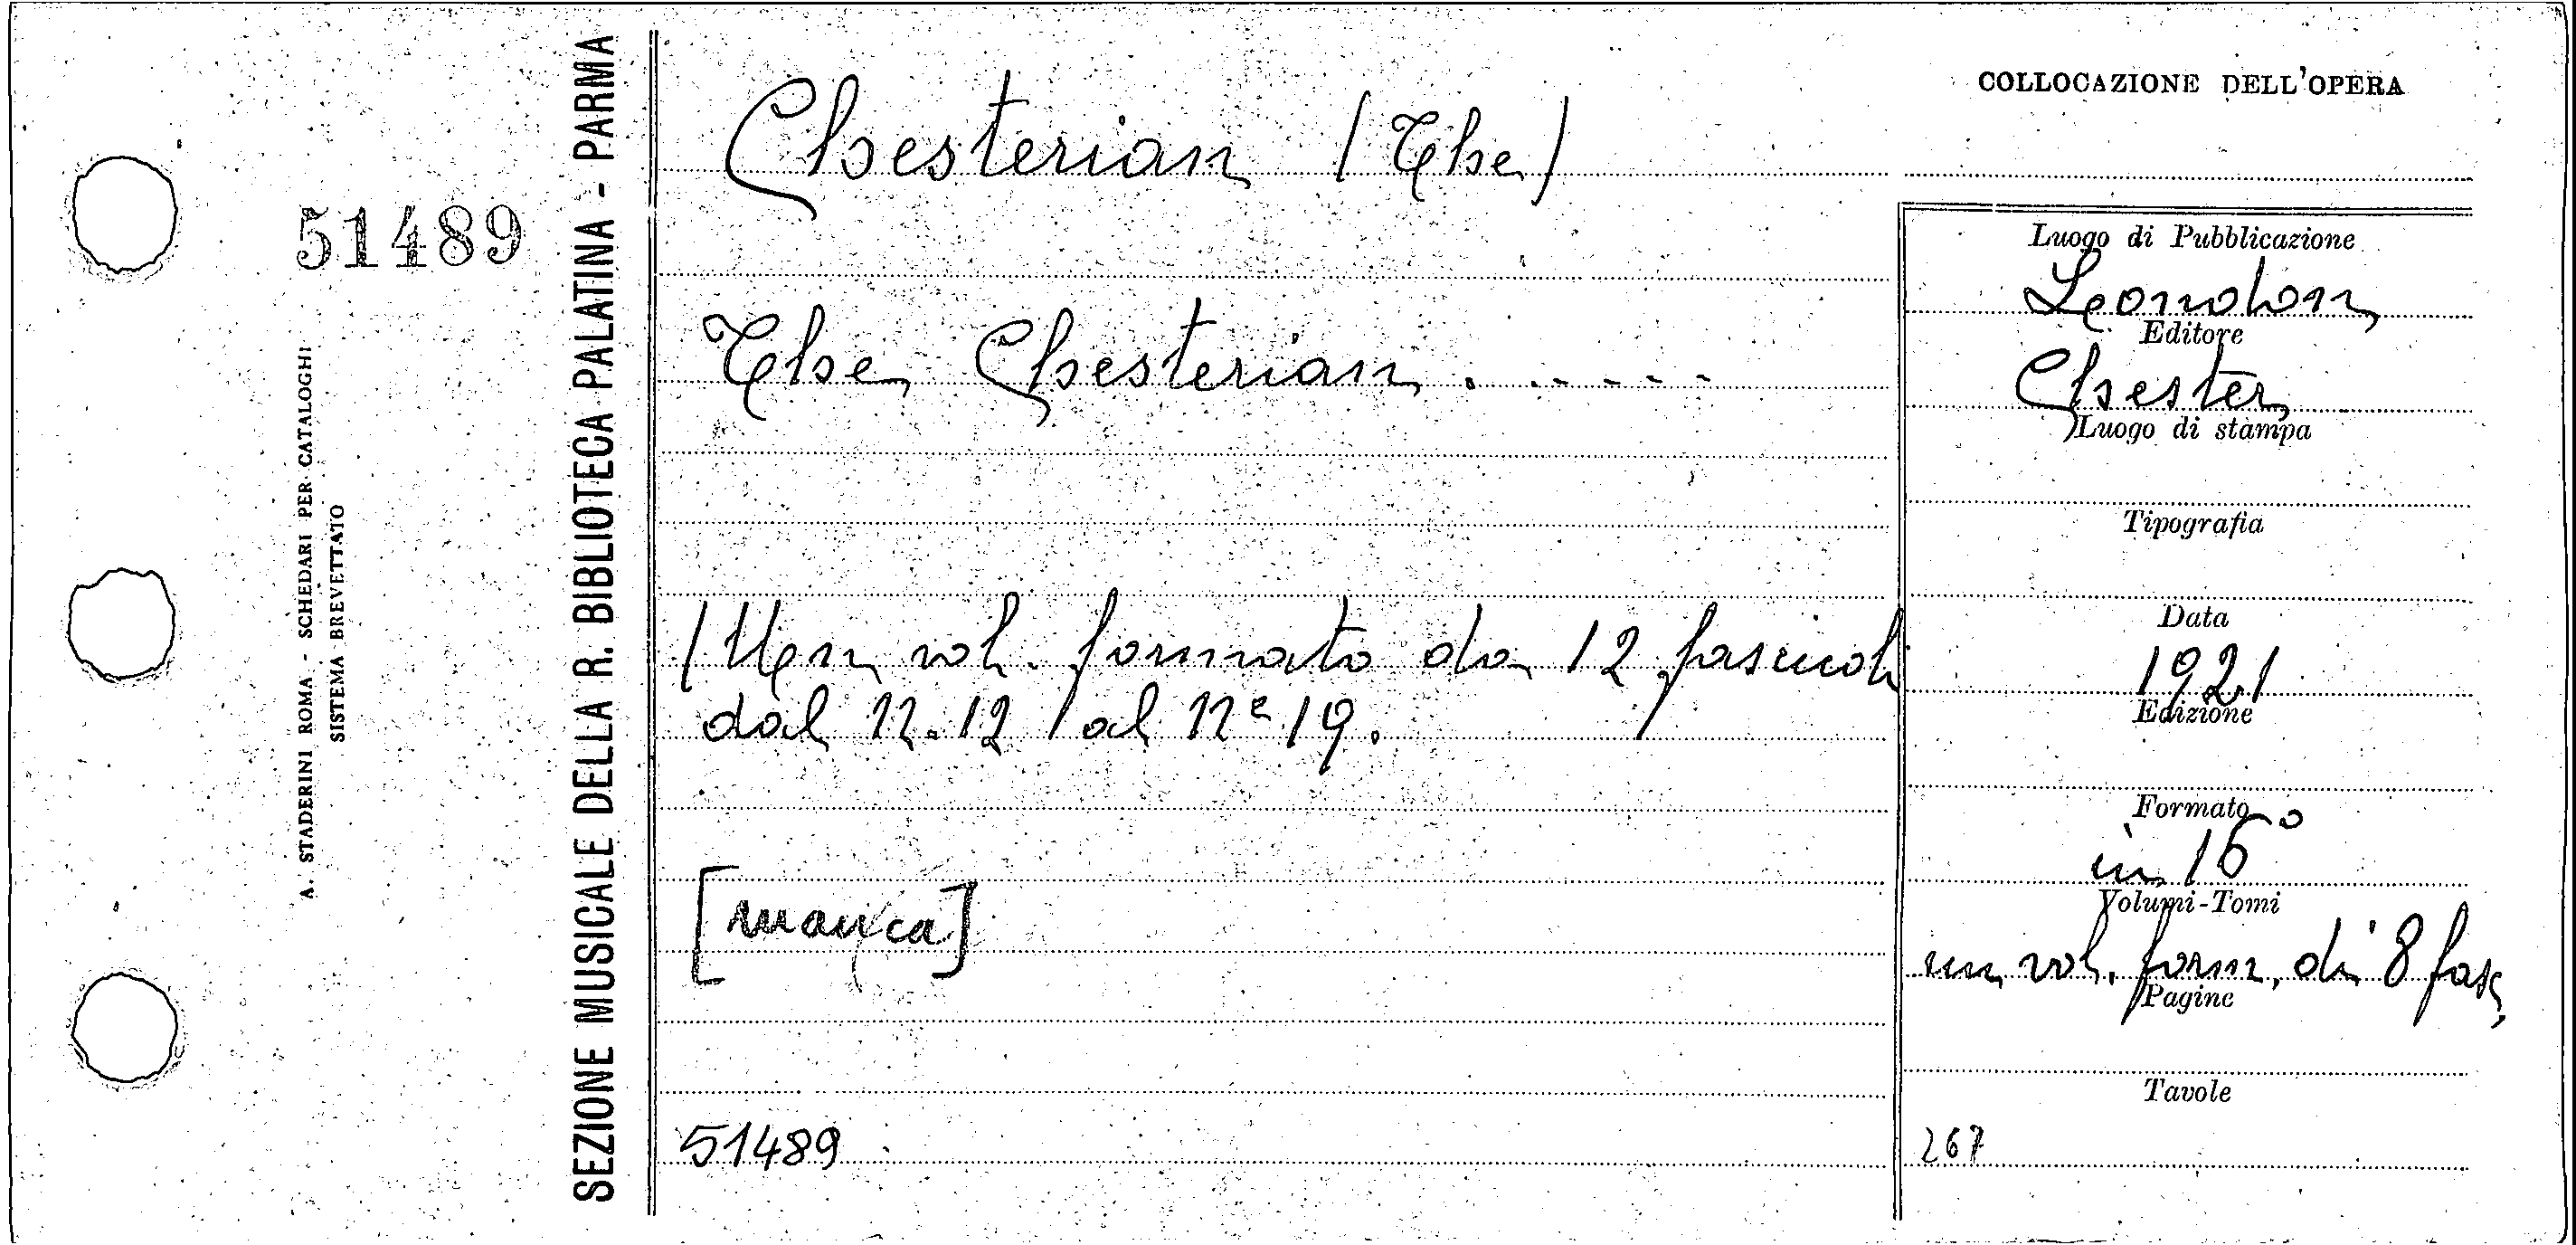 51489
A. STADERINI ROMA - SCHEDARI PER CATALOGHI
SISTEMA BREVETTATO
SEZIONE MUSICALE DELLA R. BIBLIOTECA PALATINA - PARMA
Chesterian (The)
The Chesterian . . . . . .
(Un vol. formato da 12 fascicoli
dal n. 12 al nº 19.
[manca]
51489
COLLOCAZIONE DELL'OPERA
Luogo di Pubblicazione
London
Editore
Chester
Luogo di stampa
Tipografia
Data
1921
Edizione
Formato
in 16°
Volumi-Tomi
un vol. form. di 8 fasc.
Pagine
Tavole
267